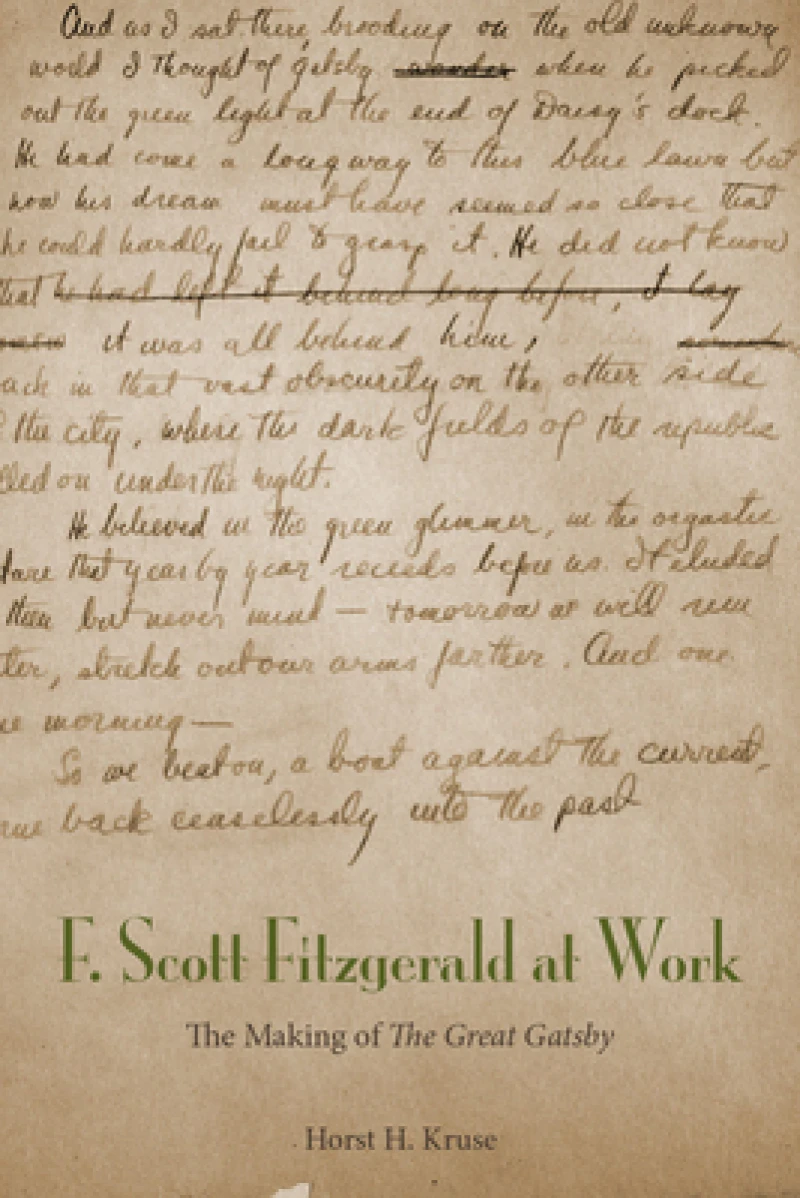 And as I sat there, brooding on the old unknown
world I thought of Gatsby wonder when he picked
out the green light at the end of Daisy's dock.
He had come a long way to this blue lawn but
now his dream must have seemed so close that
he could hardly fail to grasp it. He did not know
that he had left it behind long before, I lay
it was all behind him,
ack in that vast obscurity on the other side
the city, where the dark fields of the republic
lled on under the night.
He believed in the green glimmer, in the orgastic
ture that year by year recedes before us. It eluded
then but never mind — tomorrow we will run
ter, stretch out our arms farther. And one
ne morning —
So we beat on, a boat against the current,
rne back ceaselessly into the past
F. Scott Fitzgerald at Work
The Making of The Great Gatsby
Horst H. Kruse